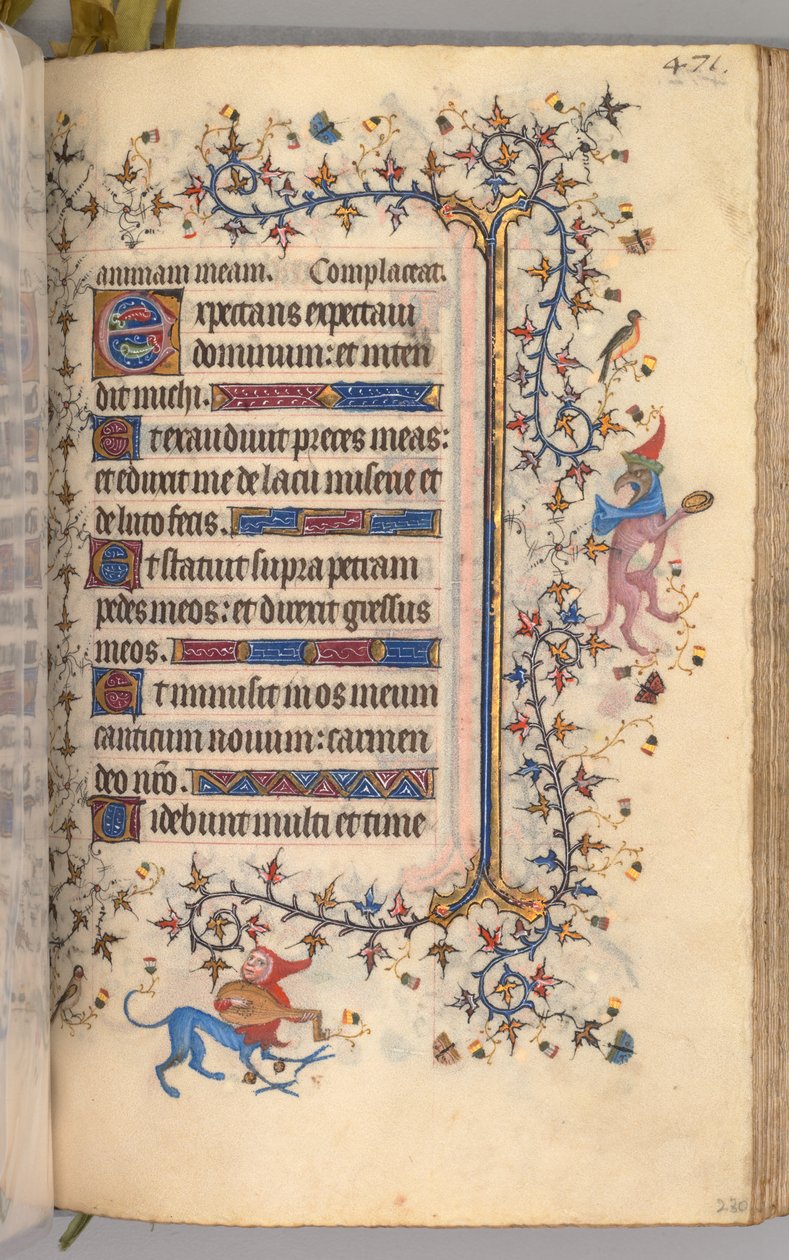 471.
animam meam. Complaceat.
Expectans expectaui
dominum: et inten
dit michi.
Et exaudiuit preces meas:
et eduxit me de lacu miserie et
de luto fecis.
Et statuit supra petram
pedes meos: et direxit gressus
meos.
Et immisit in os meum
canticum nouum: carmen
deo nr̄o.
Uidebunt multi et time
230